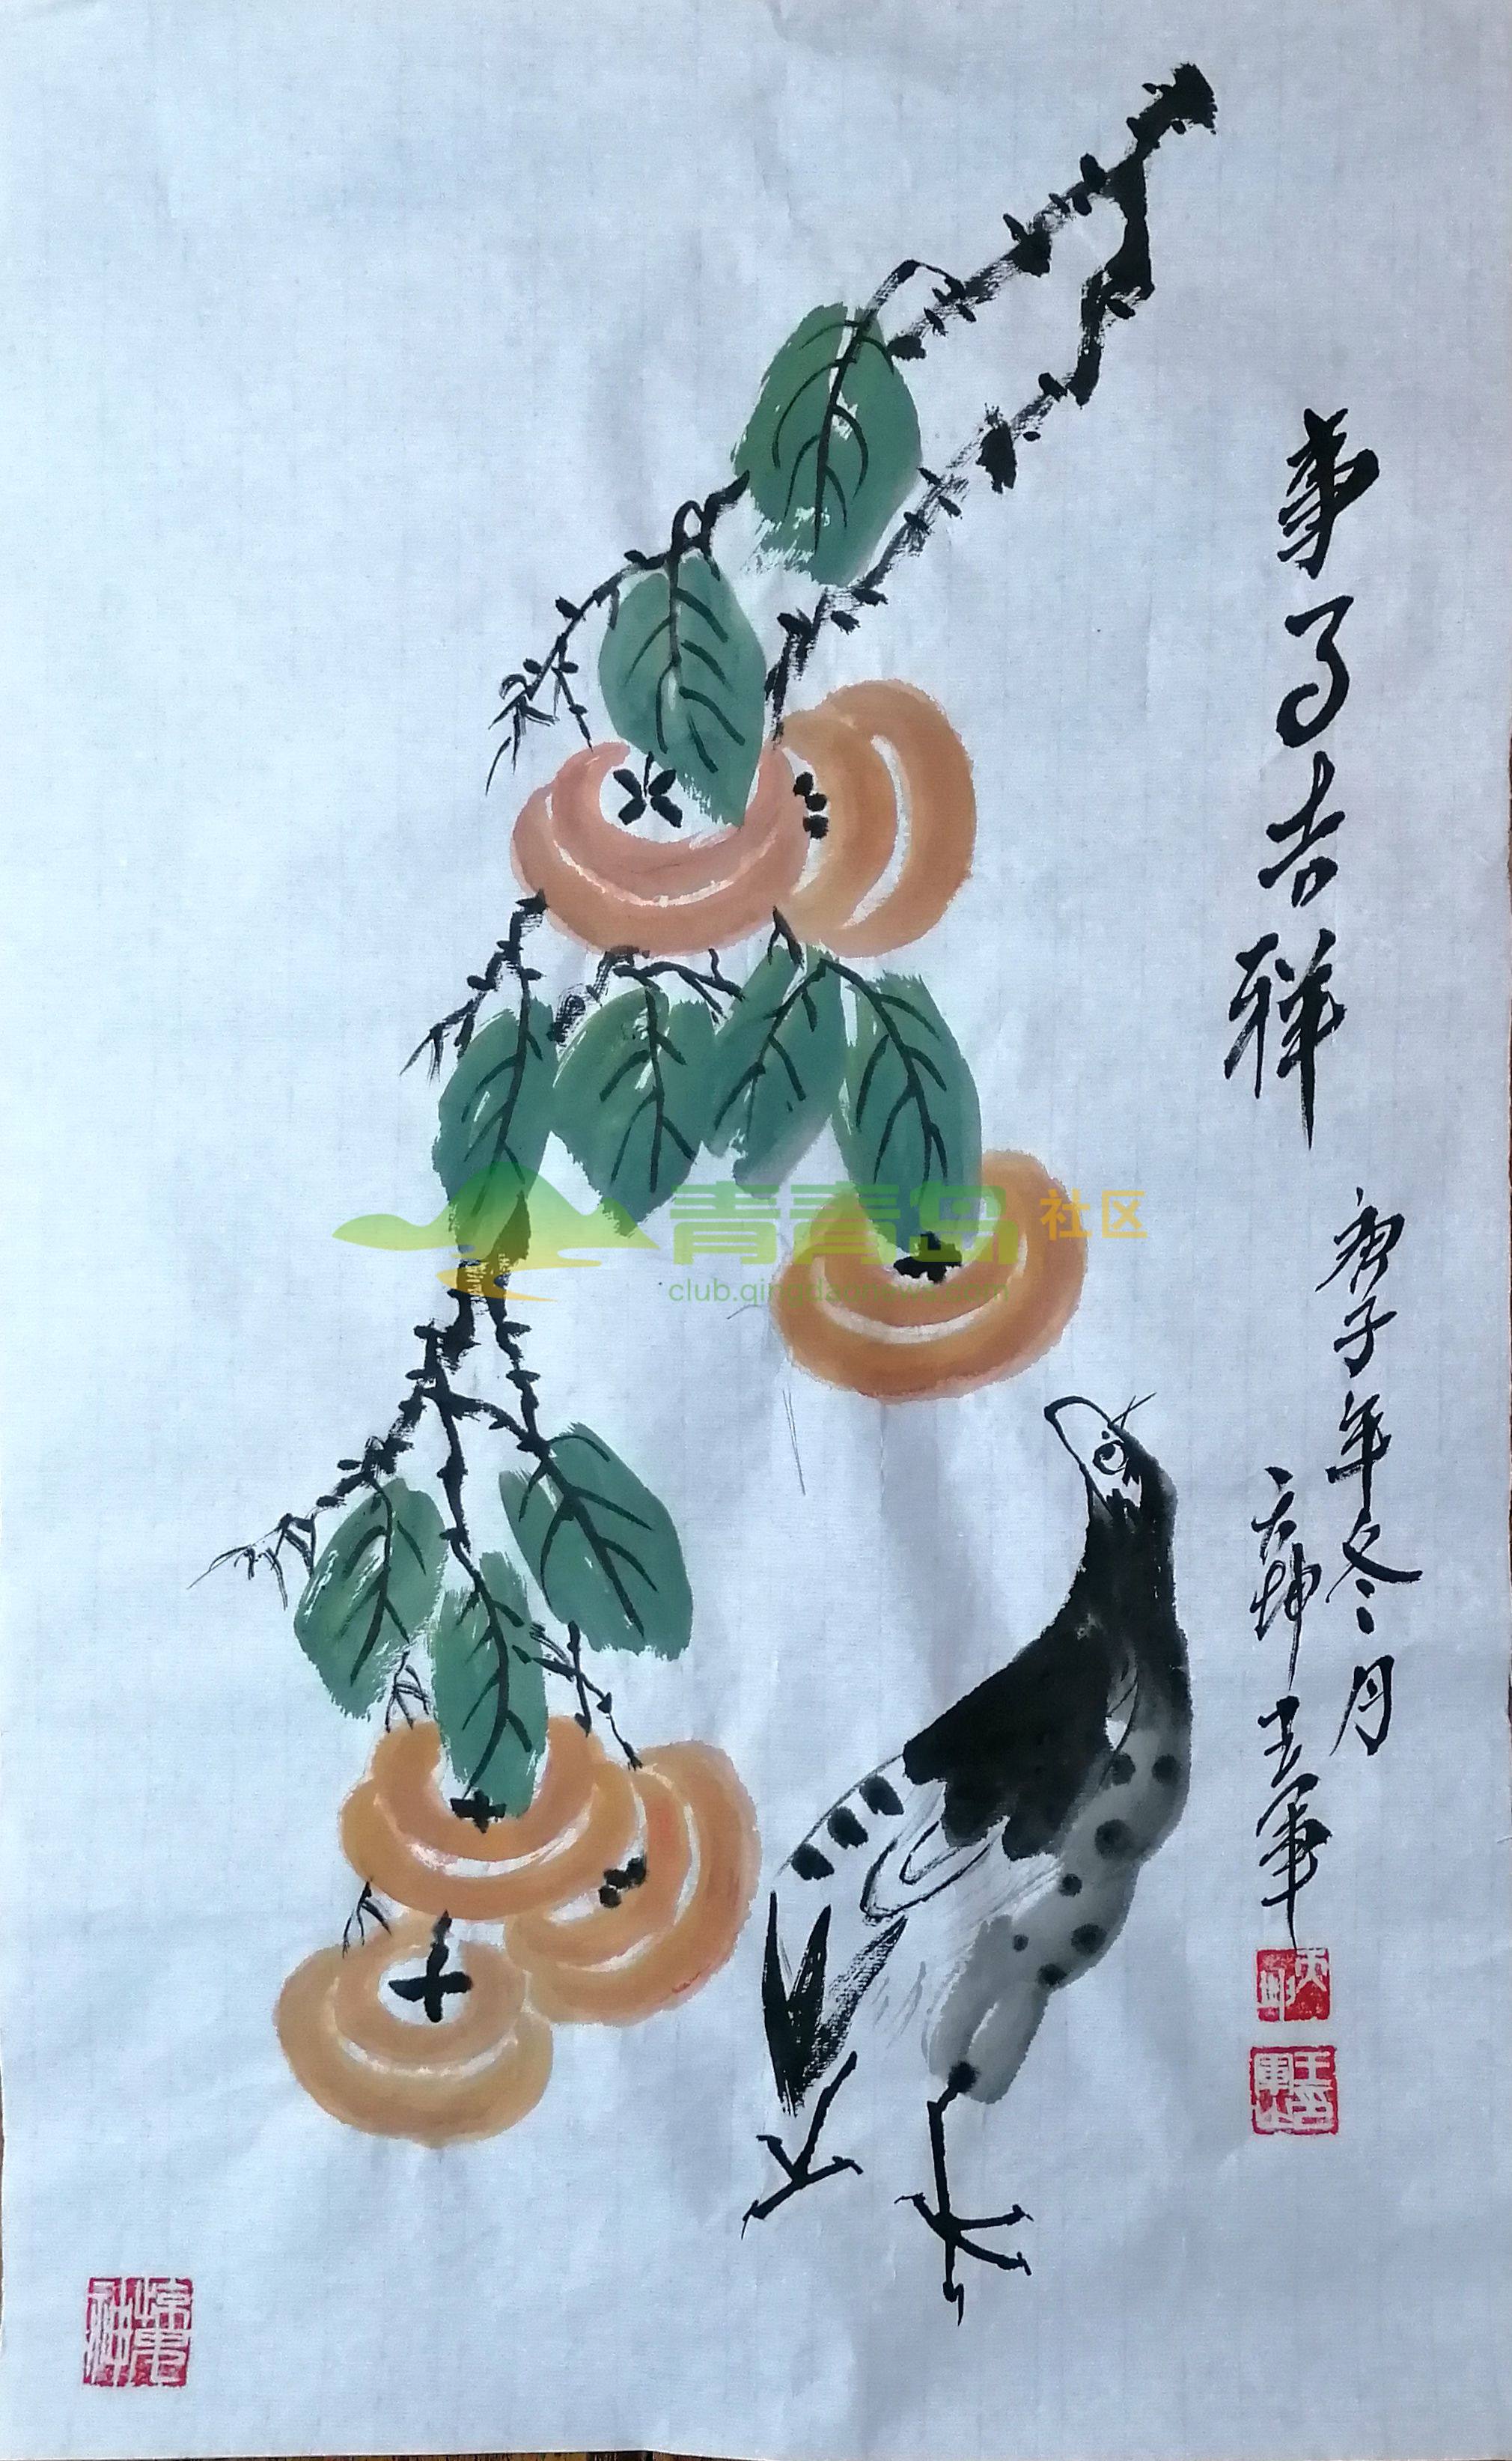 事事吉祥
庚子年冬月
天坤王軍
天坤
青青岛社区
club.qingdaonews.com